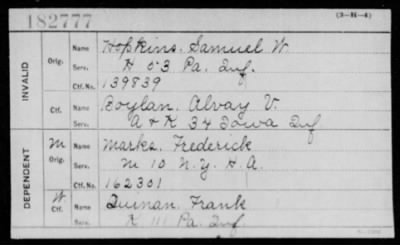 182777
(3-H-4)
INVALID
Orig.
Name Hopkins, Samuel W.
Serv. H 53 Pa. Inf.
Ctf. No. 139839
Ctf.
Name Boylan, Alvay V.
Serv. A & K 34 Iowa Inf
DEPENDENT
M
Orig.
Name Marks, Frederick
Serv. M 10 N.Y. H.A.
Ctf. No. 162301
W.
Ctf.
Name Quinan, Frank
Serv. K 111 Pa. Inf.